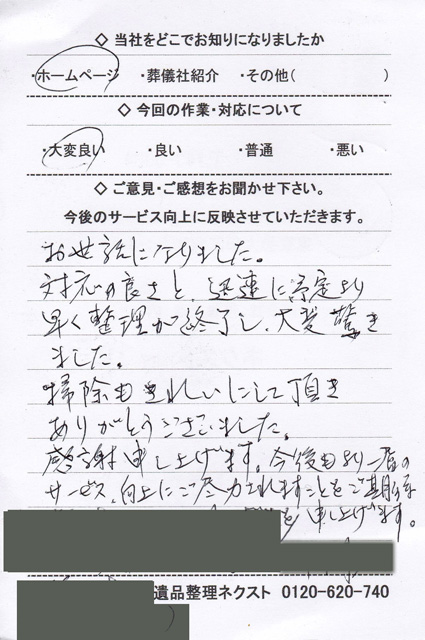 ◇ 当社をどこでお知りになりましたか
・ホームページ ・葬儀社紹介 ・その他( )
◇ 今回の作業・対応について
・大変良い ・良い ・普通 ・悪い
◇ ご意見・ご感想をお聞かせ下さい。
今後のサービス向上に反映させていただきます。
お世話になりました。
対応の良さと、迅速に予定より
早く整理が終了し、大変驚き
ました。
掃除もきれいにして頂き
ありがとうございました。
感謝申し上げます。今後もより一層の
サービス向上にご尽力されますことをご期待
を申し上げます。
遺品整理ネクスト 0120-620-740